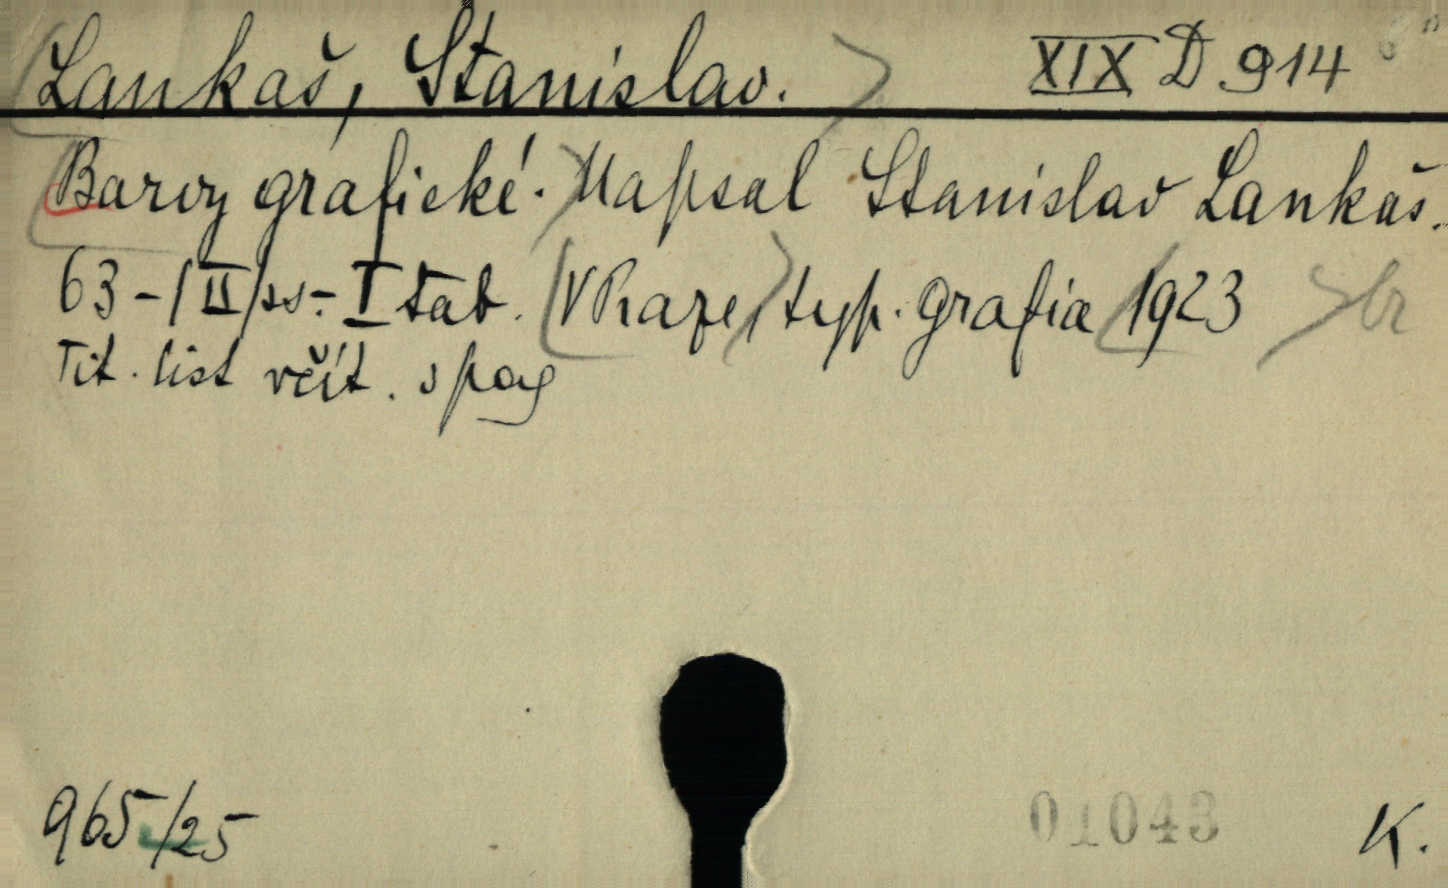 Lankaš, Stanislav. XIX D 914
Barvy grafické. Napsal Stanislav Lankaš.
63-/II/ss.- I tab. V Praze, typ. Grafia 1923 br
Tit. list včít. s pag
965/25 01043 K.